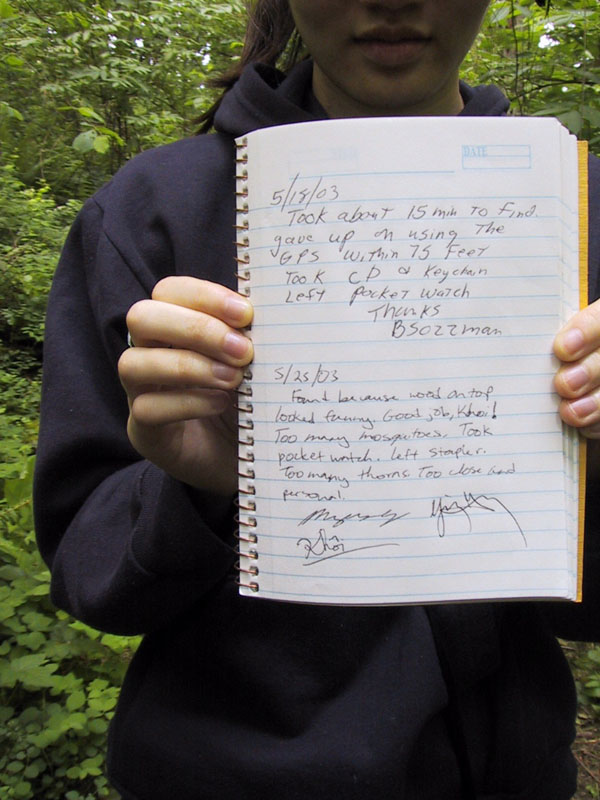 DATE
5/18/03
Took about 15 min to find.
gave up on using the
GPS within 75 feet
Took CD & Keychain
Left pocket watch
Thanks
BSozzman
5/25/03
Found because wood on top
looked funny. Good job, Khoi!
Too many mosquitoes. Took
pocket watch. left stapler.
Too many thorns. Too close and
personal.
Khôi